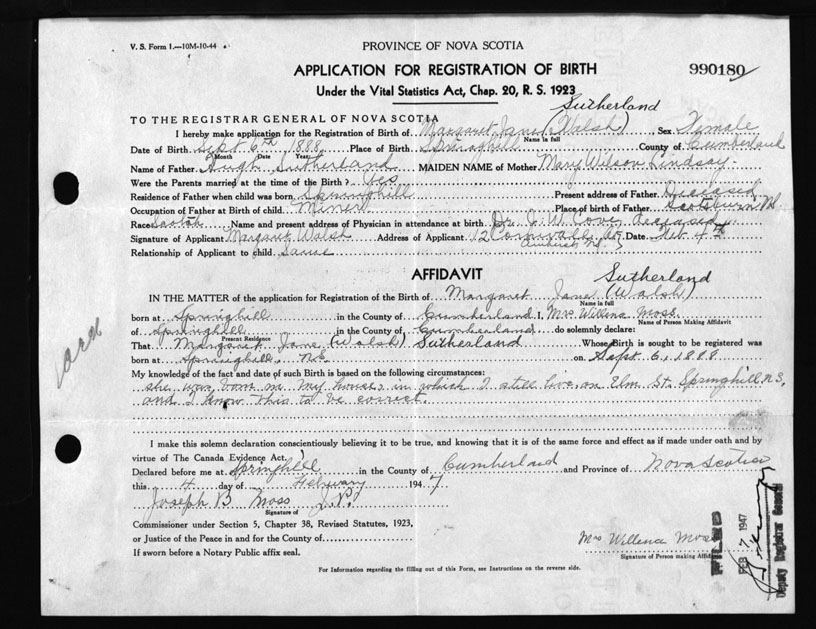 V. S. Form 1.—10M-10-44
PROVINCE OF NOVA SCOTIA
APPLICATION FOR REGISTRATION OF BIRTH
990180
Under the Vital Statistics Act, Chap. 20, R. S. 1923
Sutherland
TO THE REGISTRAR GENERAL OF NOVA SCOTIA
I hereby make application for the Registration of Birth of Margaret Jane (Walsh), Sex Female
Name is full
Date of Birth Sept 6th 1888 Place of Birth Springhill County of Cumberland
Month Date Year
Name of Father Hugh Sutherland MAIDEN NAME of Mother Mary Wilson Lindsay
Were the Parents married at the time of the Birth? Yes
Residence of Father when child was born Springhill Present address of Father Diceased
Occupation of Father at Birth of child Miner Place of birth of Father Scotsburn NS
Race Scotch Name and present address of Physician in attendance at birth Dr. Cove Deceased
Signature of Applicant Margaret Walsh Address of Applicant 12 Cornwall St Date Feb 4th
Amherst NS
Relationship of Applicant to child Same
AFFIDAVIT
Sutherland
IN THE MATTER of the application for Registration of the Birth of Margaret Jane (Walsh)
Name is full
born at Springhill in the County of Cumberland I, Mrs Willena Moss
Name of Person Making Affidavit
of Springhill in the County of Cumberland do solemnly declare:
Present Residence
That Margaret Jane (Walsh) Sutherland Whose Birth is sought to be registered was
born at Springhill, NS on Sept 6, 1888
My knowledge of the fact and date of such Birth is based on the following circumstances:
she was born in my house, in which I still live, on Elm St. Springhill N.S,
and I know this to be correct.
I make this solemn declaration conscientiously believing it to be true, and knowing that it is of the same force and effect as if made under oath and by
virtue of The Canada Evidence Act.
Declared before me at Springhill in the County of Cumberland and Province of Nova Scotia
this 4 day of February 1947
Joseph B Moss J.P.
Signature of
Commissioner under Section 5, Chapter 38, Revised Statutes, 1923,
or Justice of the Peace in and for the County of
If sworn before a Notary Public affix seal.
Mrs Willena Moss
Signature of Person making Affidavit
For Information regarding the filling out of this Form, see Instructions on the reverse side.
FILED
FEB 7 1947
Deputy Registrar General